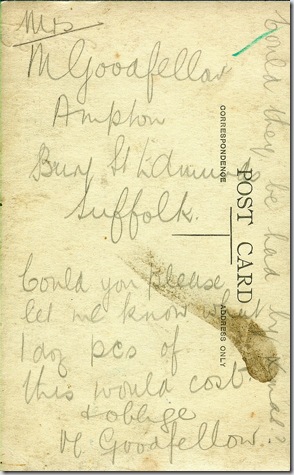 Mrs
M Goodfellow
Ampton
Bury St Edmunds
Suffolk.
Could you please
let me know what
1 doz pcs of
this would cost
& oblige
M Goodfellow.
Could they be had by Xmas?
POST CARD
CORRESPONDENCE
ADDRESS ONLY